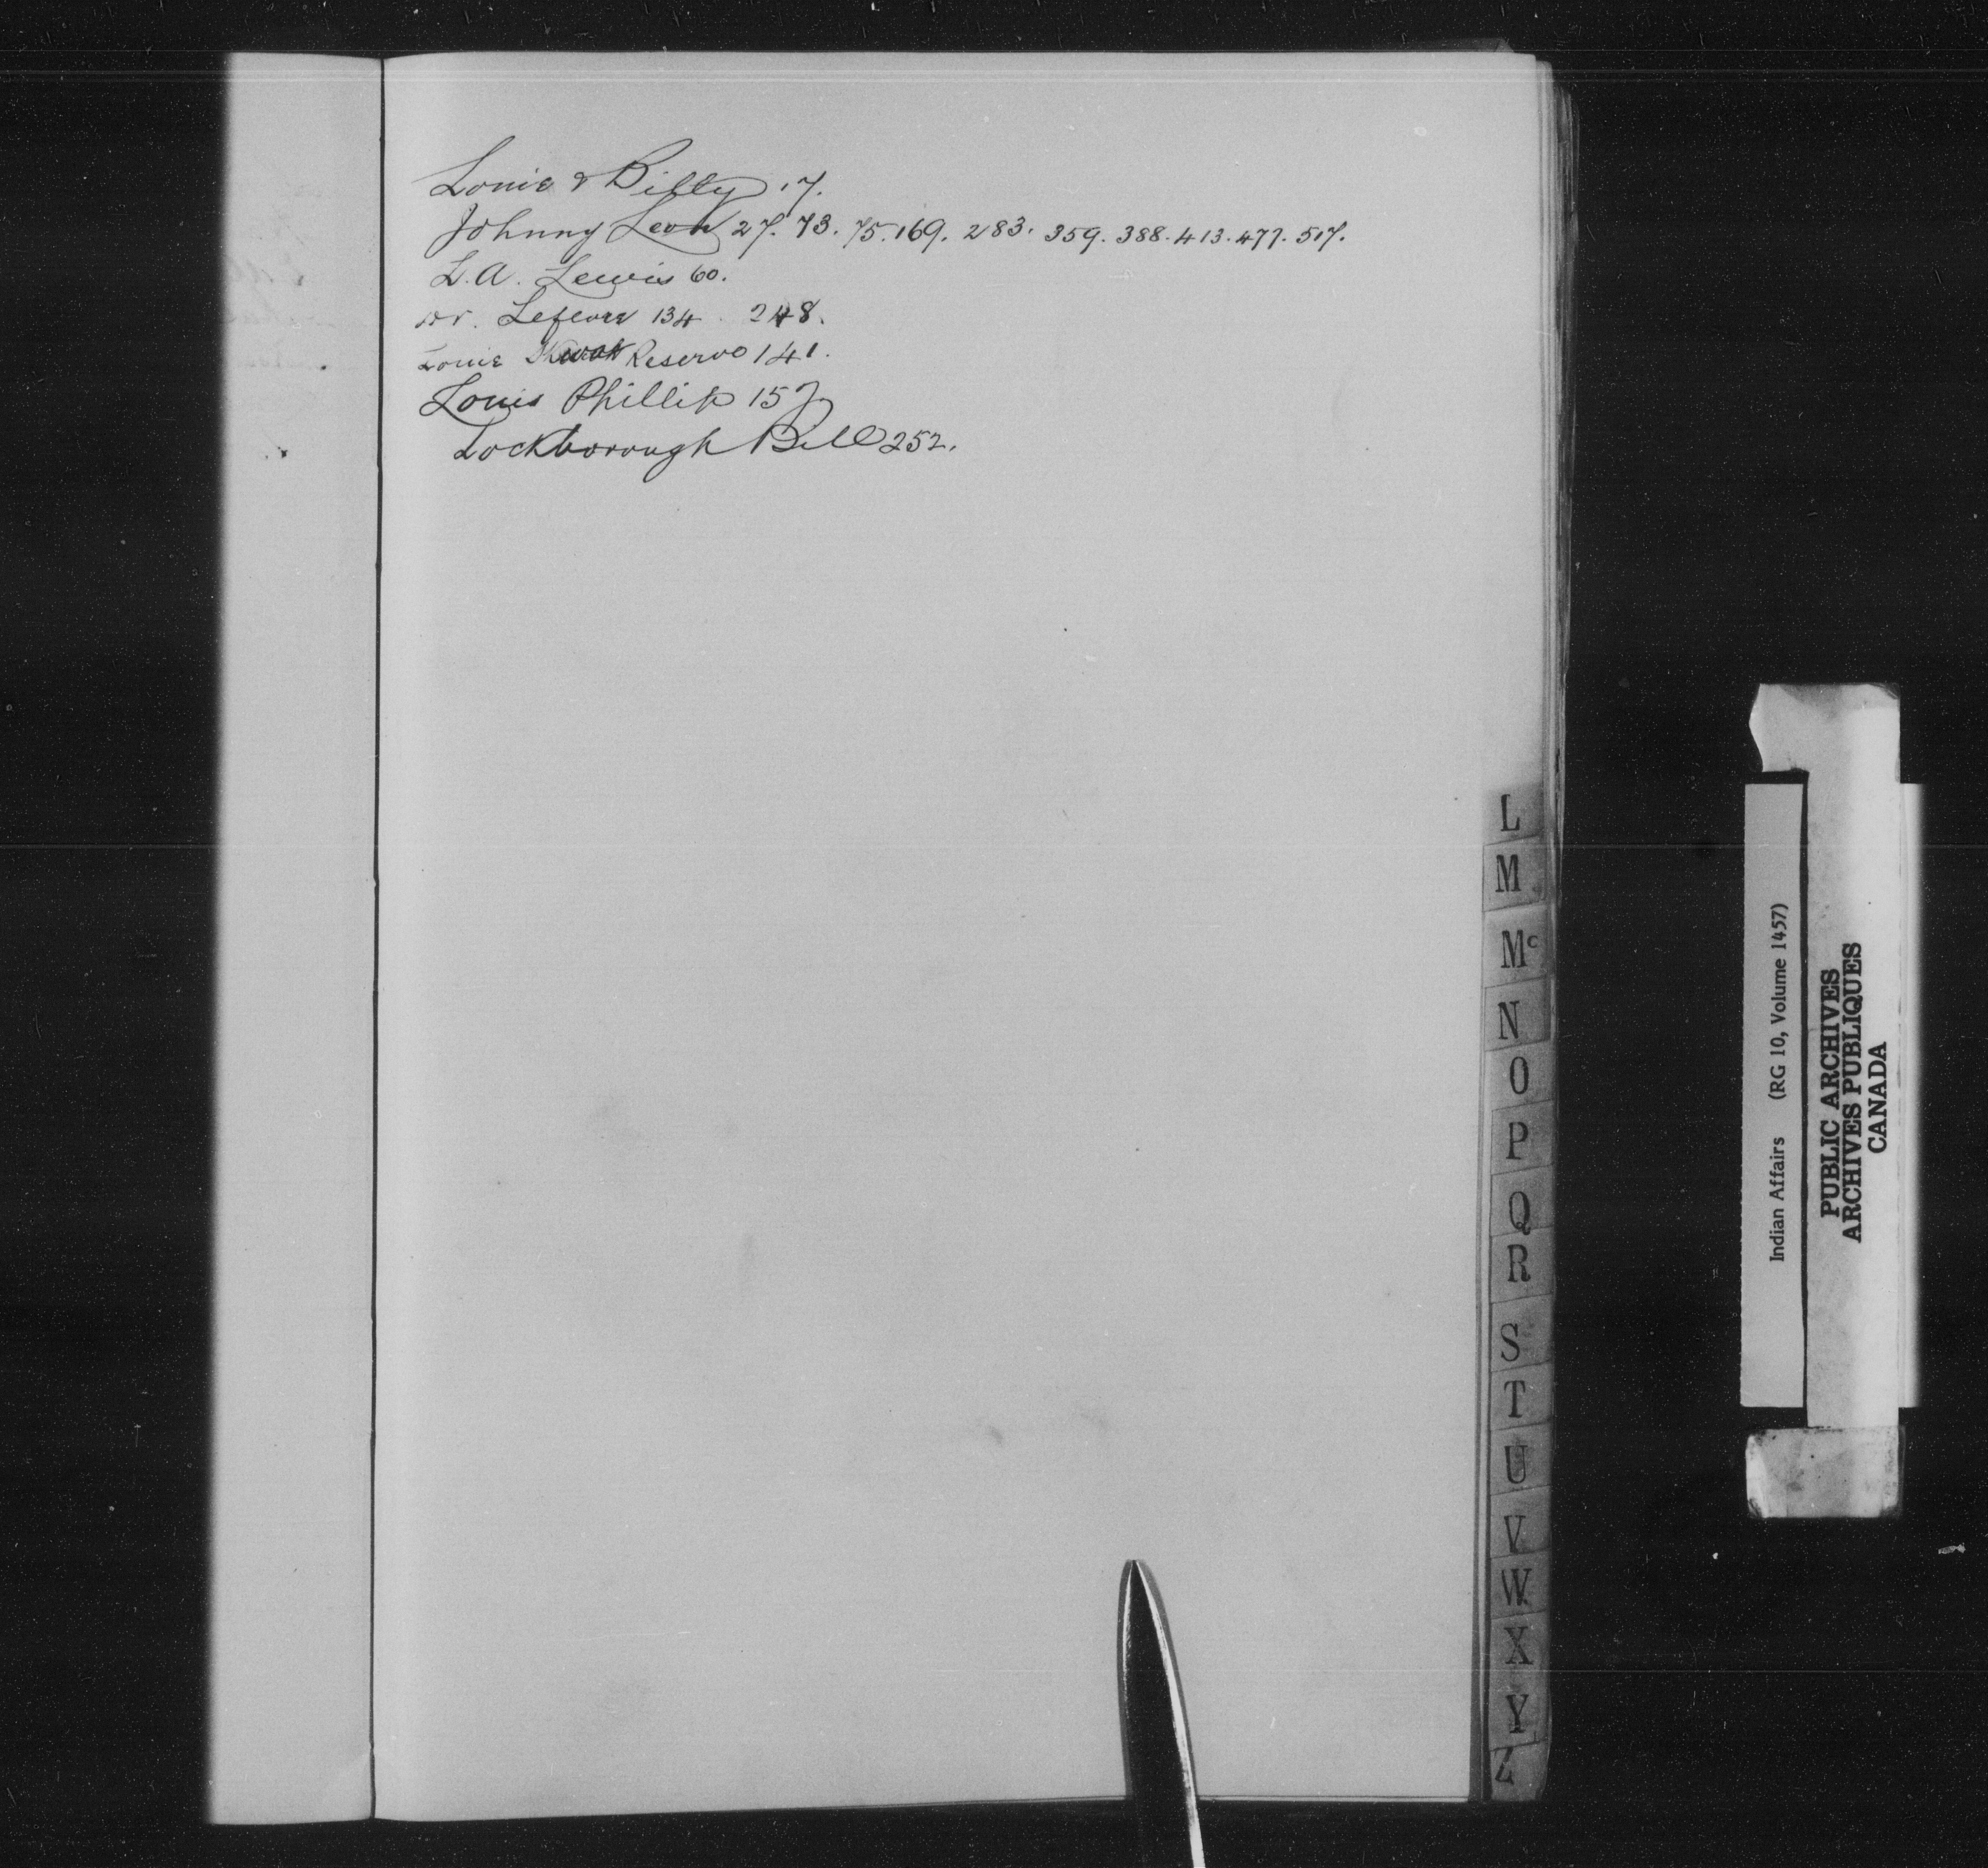 Louie & Billy 17.
Johnny Leon 27. 73. 75. 169. 283. 359. 388. 413. 477. 517.
L. A. Lewis 60.
Dr. Lefevre 134. 248.
Louie Reserve 141.
Louis Phillip 157
Lockborough Bill 252.
L
M
Mc
N
O
P
Q
R
S
T
U
V
W
X
Y
Z
Indian Affairs (RG 10, Volume 1457)
PUBLIC ARCHIVES
ARCHIVES PUBLIQUES
CANADA